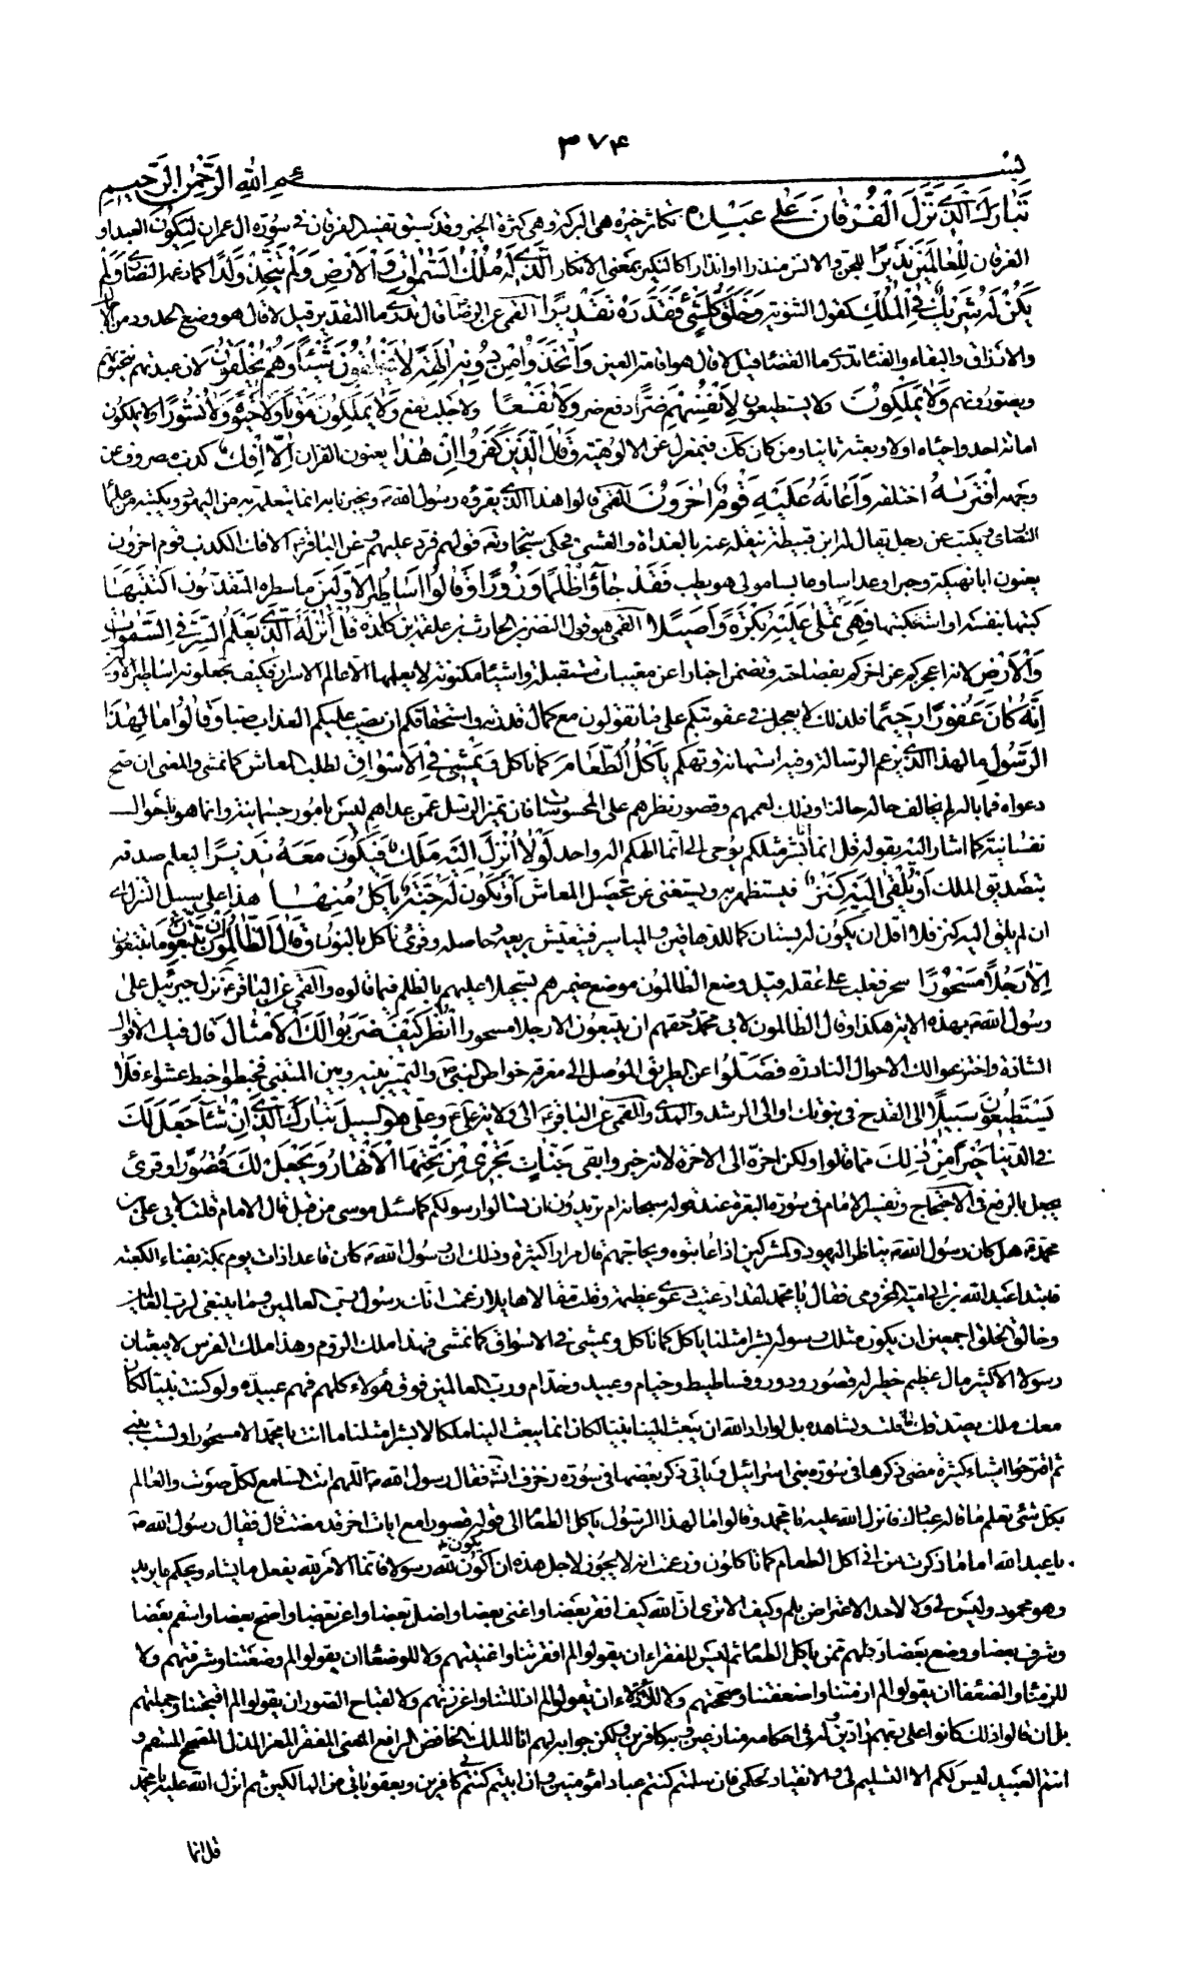 ٣٧۴
بسم الله الرحمن الرحيم
تبارك الذي نزل الفرقان على عبده تكاثر خيره هي البركة وهي كثرة الخير وقد سبق تفسير الفرقان في سورة ال عمران ليكون العبد او
الفرقان للعالمين نذيرا للجن والانس منذرا او انذارا كالنكير بمعنى الانكار الذي له ملك السموات والارض ولم يتخذ ولدا كما زعمه النصارى ولم
يكن له شريك في الملك كقول الثنوية وخلق كل شئ فقدره تقديرا القمي عن الرضا قال تدري ما التقدير قيل لا قال هو وضع الحدود من الاجال
والارزاق والبقاء والفناء تدري ما القضاء قيل لا قال هو اقامة العين واتخذوا من دونه الهة لا يخلقون شيئا وهم يخلقون لان عبدتهم ينحتونهم
ويصورونهم ولا يملكون ولا يستطيعون لانفسهم ضرا دفع ضر ولا نفعا ولا جلب نفع ولا يملكون موتا ولا حيوة ولا نشورا ولا يملكون
اماتة احد واحياءه اولا وبعثه ثانيا ومن كان كك فبمعزل عن الالوهية وقال الذين كفروا ان هذا يعنون القران الا افك كذب مصروف عن
وجهه افتريه اختلقه واعانه عليه قوم اخرون القمي قالوا هذا الذي يقرؤه رسول الله ويخبرنا به انما يتعلمه من اليهود ويكتبه من علماء
النصارى ويكتب عن رجل يقال له ابن قبيطة ينقله عنه بالغداة والعشي فحكى سبحانه قولهم فرد عليهم وعن الباقر الافك الكذب قوم اخرون
يعنون ابا فهيكة وحبرا وعداسا وعابسا مولى حويطب فقد جاؤا ظلما وزورا وقالوا اساطير الاولين ما سطره المتقدمون اكتتبها
كتبها بنفسه او استكتبها فهي تملى عليه بكرة واصيلا القمي هو قول النضر بن الحارث بن علقمة بن كلدة قل انزله الذي يعلم السر في السموات
والارض لانه اعجزكم عن اخركم بفصاحته وتضمن اخبارا عن مغيبات مستقبلة واشياء مكنونة لا يعلمها الا عالم الاسرار فكيف تجعلونه اساطير الاولين
انه كان غفورا رحيما فلذلك لا يعجل في عقوبتكم على ما تقولون مع كمال قدرته واستحقاقكم ان يصب عليكم العذاب صبا وقالوا ما لهذا
الرسول ما لهذا الذي يزعم الرسالة وفيه استهانة وتهكم يأكل الطعام كما نأكل ويمشي في الاسواق لطلب المعاش كما نمشي والمعنى ان صح
دعواه فما باله لم يخالف حاله حالنا وذلك لعمههم وقصور نظرهم على المحسوسات فان تميز الرسل عمن عداهم ليس بامور جسمانية وانما هو باحوال
نفسانية كما اشار اليه بقوله قل انما انا بشر مثلكم يوحى الي انما الهكم اله واحد لولا انزل اليه ملك فيكون معه نذيرا ليعلم صدقه
بتصديق الملك او يلقى اليه كنز فيستظهر به ويستغني عن تحصيل المعاش او تكون له جنة يأكل منها هذا على سبيل التنزل اي
ان لم يلق اليه كنز فلا اقل ان يكون له بستان كما للدهاقين والمياسير فيتعيش بريعه وحاصله وقرئ نأكل بالنون وقال الظالمون ان تتبعون ما تتبعون
الا رجلا مسحورا سحر فغلب على عقله قيل وضع الظالمون موضع ضميرهم تسجيلا عليهم بالظلم فيما قالوه والقمي عن الباقر نزل جبرئيل على
رسول الله بهذه الاية هكذا وقال الظالمون لال محمد حقهم ان يتبعون الا رجلا مسحورا انظر كيف ضربوا لك الامثال قالوا فيك الاقوال
الشاذة واخترعوا لك الاحوال النادرة فضلوا عن الطريق الموصل الى معرفة خواص النبي والتميز بينه وبين المتنبي فخبطوا خبط عشواء فلا
يستطيعون سبيلا الى القدح في نبوتك او الى الرشد والهدى والقمي عن الباقر الى ولاية علي وعلي هو السبيل تبارك الذي ان شاء جعل لك
في الدنيا خيرا من ذلك مما قالوا ولكن اخره الى الاخرة لانه خير وابقى جنات تجري من تحتها الانهار ويجعل لك قصورا وقرئ
يجعل بالرفع في الاحتجاج وتفسير الامام في سورة البقرة عند قوله سبحانه ام تريدون ان تسألوا رسولكم كما سئل موسى من قبل قال الامام قلت لابي علي بن
محمد هل كان رسول الله يناظر اليهود والمشركين اذا عاتبوه ويحاجهم قال مرارا كثيرة وذلك ان رسول الله كان قاعدا ذات يوم بمكة بفناء الكعبة
فابتدا عبد الله بن ابي امية المخزومي فقال يا محمد لقد ادعيت دعوى عظيمة وقلت مقالا هايلا زعمت انك رسول رب العالمين وما ينبغي لرب العالمين
وخالق الخلق اجمعين ان يكون مثلك رسوله بشرا مثلنا يأكل كما نأكل ويمشي في الاسواق كما نمشي فهذا ملك الروم وهذا ملك الفرس لا يبعثان
رسولا الا كثير مال عظيم خطر له قصور ودور وفساطيط وخيام وعبيد وخدام ورب العالمين فوق هؤلاء كلهم فهم عبيده ولو كنت نبيا لكان
معك ملك يصدقك ونشاهده بل لو اراد الله ان يبعث الينا نبيا لكان انما يبعث الينا ملكا لا بشرا مثلنا ما انت يا محمد الا مسحورا ولست بنبي
ثم اقترحوا اشياء كثيرة مضى ذكرها في سورة بني اسرائيل ويأتي ذكر بعضها في سورة زخرف انشا فقال رسول الله اللهم انت السامع لكل صوت والعالم
بكل شئ تعلم ما قاله عبادك فانزل الله عليه يا محمد وقالوا ما لهذا الرسول يأكل الطعام الى قوله قصورا مع ايات اخر قد مضت قال فقال رسول الله
يا عبد الله اما ما ذكرت من اني اكل الطعام كما تأكلون وزعمت انه لا يجوز لاجل هذه ان اكون لله رسولا فانما الامر لله يفعل ما يشاء ويحكم ما يريد
وهو محمود وليس لي ولا لاحد الاعتراض بلم وكيف الا ترى ان الله كيف افقر بعضا واغنى بعضا واذل بعضا واعز بعضا واصح بعضا واسقم بعضا
وشرف بعضا ووضع بعضا وكلهم ممن يأكل الطعام ثم ليس للفقراء ان يقولوا لم افقرتنا واغنيتهم ولا للوضعاء ان يقولوا لم وضعتنا وشرفتهم ولا
للزمناء والضعفاء ان يقولوا لم ازمنتنا واضعفتنا وصححتهم ولا للاذلاء ان يقولوا لم اذللتنا واعززتهم ولا لقباح الصور ان يقولوا لم اقبحتنا وجملتهم
بل ان قالوا ذلك كانوا على ربهم رادين وله في احكامه منازعين وبه كافرين ولكن جوابه لهم انا الملك الخافض الرافع المغني المفقر المعز المذل المصحح المسقم و
انتم العبيد ليس لكم الا التسليم لي والانقياد لحكمي فان سلمتم كنتم عبادا مؤمنين وان ابيتم كنتم بي كافرين وبعقوباتي من الهالكين ثم انزل الله عليه يا محمد
قل انما